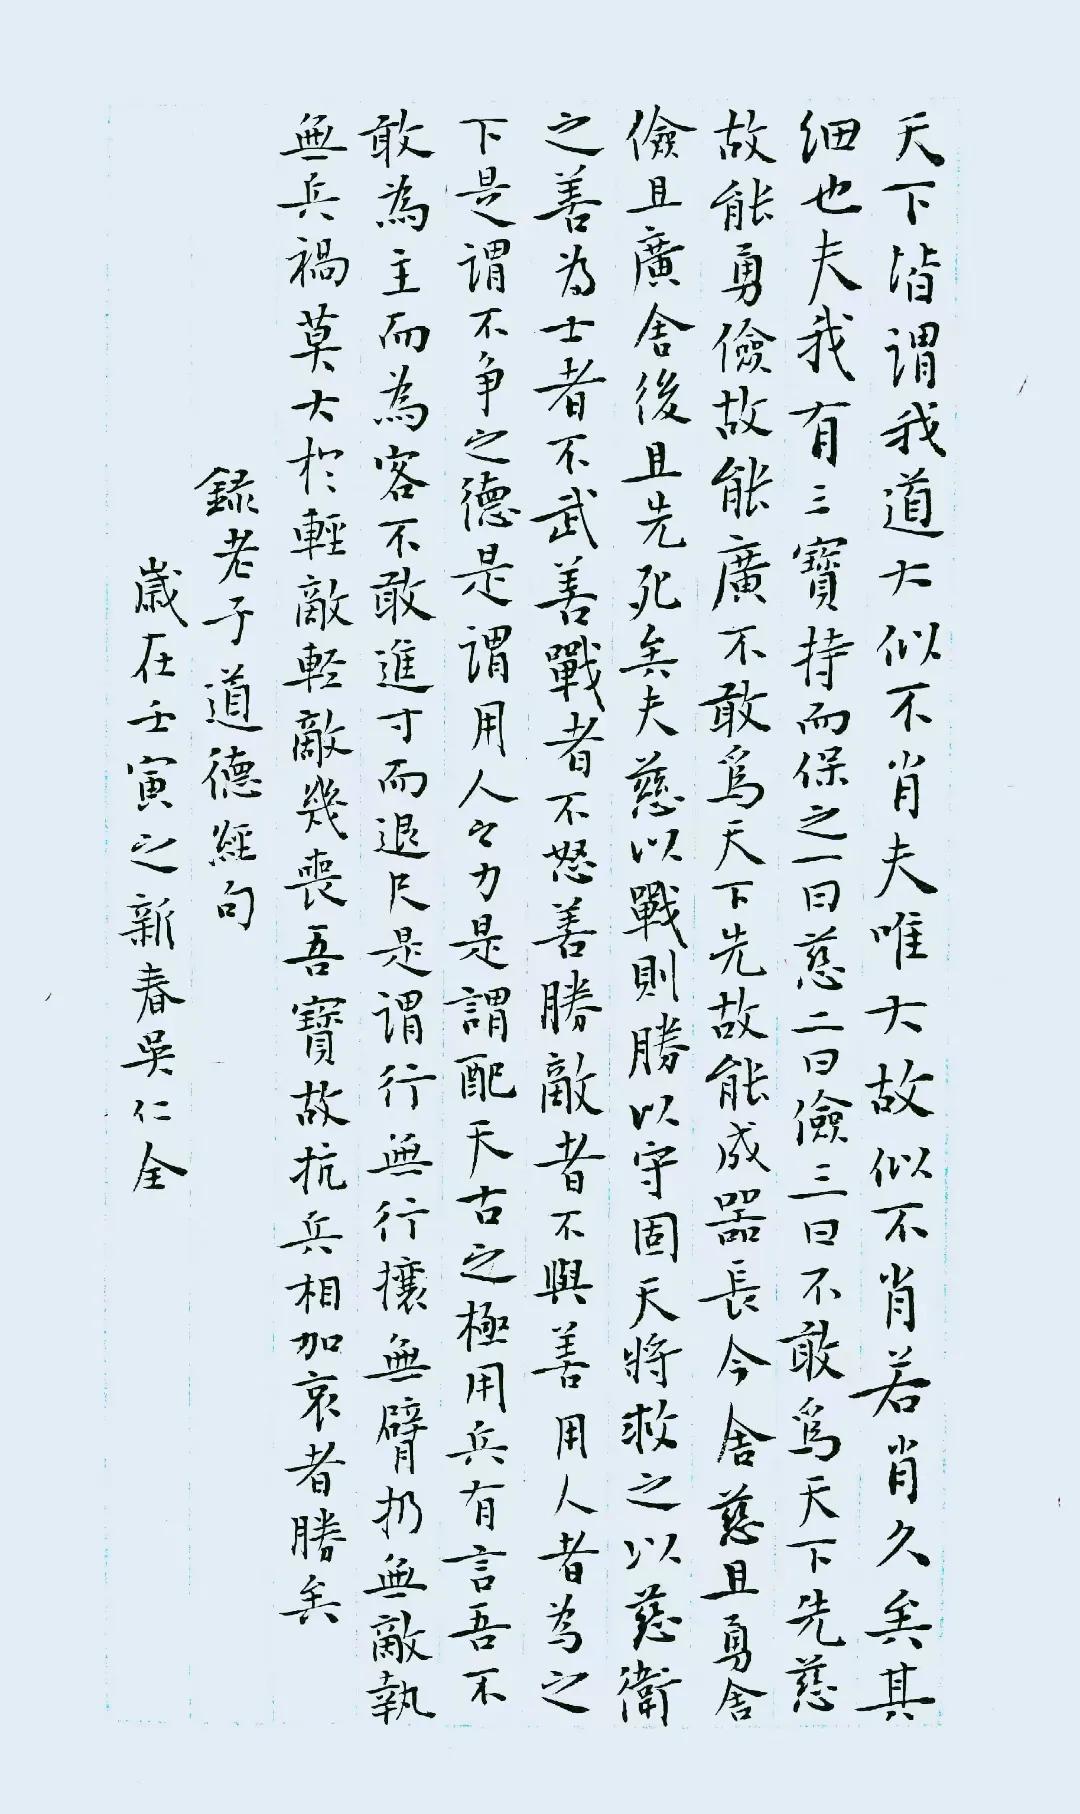 天下皆謂我道大似不肖夫唯大故似不肖若肖久矣其
細也夫我有三寶持而保之一曰慈二曰儉三曰不敢為天下先慈
故能勇儉故能廣不敢為天下先故能成器長今舍慈且勇舍
儉且廣舍後且先死矣夫慈以戰則勝以守固天將救之以慈衛
之善為士者不武善戰者不怒善勝敵者不與善用人者為之
下是謂不争之德是謂用人之力是謂配天古之極用兵有言吾不
敢為主而為客不敢進寸而退尺是謂行無行攘無臂扔無敵執
無兵禍莫大於輕敵輕敵幾喪吾寶故抗兵相加哀者勝矣
録老子道德經句
歲在壬寅之新春吳仁全